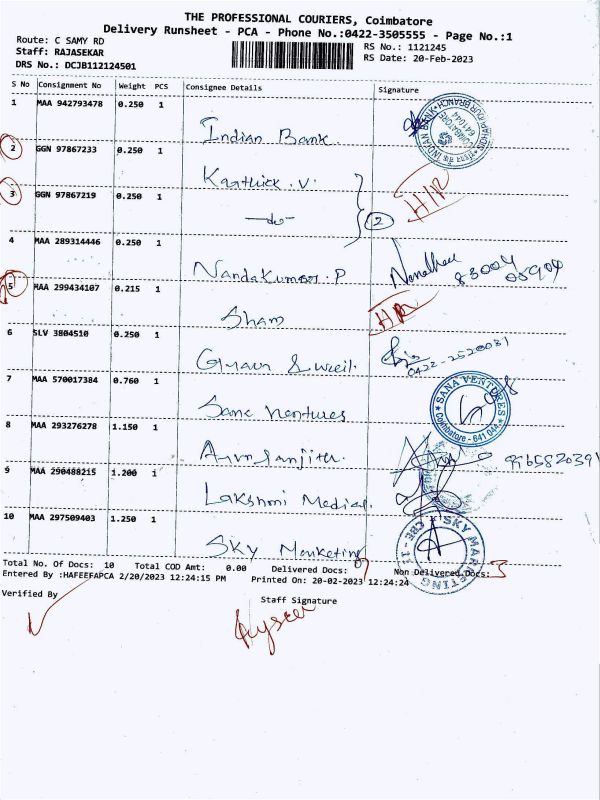 THE PROFESSIONAL COURIERS, Coimbatore
Delivery Runsheet - PCA - Phone No.:0422-3505555 - Page No.:1
Route: C SAMY RD
RS No.: 1121245
Staff: RAJASEKAR
RS Date: 20-Feb-2023
DRS No.: DCJB112124501
S No Consignment No Weight PCS Consignee Details Signature
1 MAA 942793478 0.250 1
Indian Bank
2 GGN 97867233 0.250 1
Karthick.V. HR
3 GGN 97867219 0.250 1
-do- 2
4 MAA 289314446 0.250 1
NandaKumar.P
5 MAA 299434107 0.215 1
Sham HR
6 SLV 3804510 0.250 1
0422-2520031
7 MAA 570017384 0.760 1
Sana Ventures
SANA VENTURES
Coimbatore - 641 044
8 MAA 293276278 1.150 1
9 MAA 290488215 1.200 1
Lakshmi Medical.
10 MAA 297509403 1.250 1
SKY Marketing
SKY MARKETING
Total No. Of Docs: 10 Total COD Amt: 0.00 Delivered Docs: 7 Non Delivered Docs: 3
Entered By :HAFEEFAPCA 2/20/2023 12:24:15 PM Printed On: 20-02-2023 12:24:24
Verified By
Staff Signature